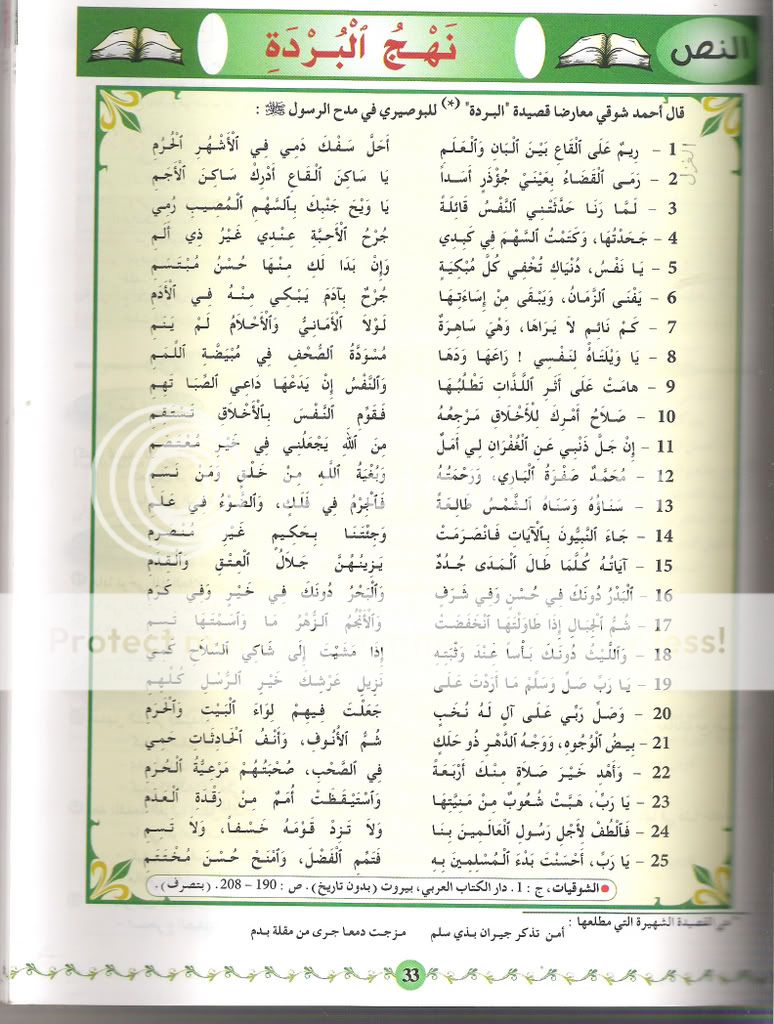 النص
نَهْجُ ٱلْبُرْدَةِ
قال أحمد شوقي معارضا قصيدة "البردة" (*) للبوصيري في مدح الرسول ﷺ :
الغزل
1 - رِيمٌ عَلَى ٱلْقَاعِ بَيْنَ ٱلْبَانِ وَٱلْعَلَمِ أَحَلَّ سَفْكَ دَمِي فِي ٱلْأَشْهُرِ ٱلْحُرُمِ
2 - رَمَى ٱلْقَضَاءُ بِعَيْنَيْ جُؤْذَرٍ أَسَداً يَا سَاكِنَ ٱلْقَاعِ أَدْرِكْ سَاكِنَ ٱلْأَجَمِ
3 - لَمَّا رَنَا حَدَّثَتْنِي ٱلنَّفْسُ قَائِلَةً يَا وَيْحَ جَنْبِكَ بِٱلسَّهْمِ ٱلْمُصِيبِ رُمِي
4 - جَحَدْتُهَا، وَكَتَمْتُ ٱلسَّهْمَ فِي كَبِدِي جُرْحُ ٱلْأَحِبَّةِ عِنْدِي غَيْرُ ذِي أَلَمِ
5 - يَا نَفْسُ، دُنْيَاكِ تُخْفِي كُلَّ مُبْكِيَةٍ وَإِنْ بَدَا لَكِ مِنْهَا حُسْنُ مُبْتَسَمِ
6 - يَفْنَى ٱلزَّمَانُ، وَيَبْقَى مِنْ إِسَاءَتِهَا جُرْحٌ بِآدَمَ يَبْكِي مِنْهُ فِي ٱلْأَدَمِ
7 - كَمْ نَائِمٍ لاَ يَرَاهَا، وَهْيَ سَاهِرَةٌ لَوْلاَ ٱلْأَمَانِيُّ وَٱلْأَحْلاَمُ لَمْ يَنَمِ
8 - يَا وَيْلَتَاهُ لِنَفْسِي ! رَاعَهَا وَدَهَا مُسْوَدَّةُ ٱلصُّحْفِ فِي مُبْيَضَّةِ ٱللِّمَمِ
9 - هامَتْ عَلَى أَثَرِ ٱللَّذَّاتِ تَطْلُبُهَا وَٱلنَّفْسُ إِنْ يَدْعُهَا دَاعِي ٱلصِّبَا تَهِمِ
10 - صَلاَحُ أَمْرِكَ لِلْأَخْلاَقِ مَرْجِعُهُ فَقَوِّمِ ٱلنَّفْسَ بِٱلْأَخْلاَقِ تَسْتَقِمِ
11 - إِنْ جَلَّ ذَنْبِي عَنِ ٱلْغُفْرَانِ لِي أَمَلٌ مِنَ ٱللهِ يَجْعَلُنِي فِي خَيْرِ مُعْتَصَمِ
12 - مُحَمَّدٌ صَفْوَةُ ٱلْبَارِي، وَرَحْمَتُهُ وَبُغْيَةُ ٱللَّهِ مِنْ خَلْقٍ وَمَنْ نَسَمِ
13 - سَنَاؤُهُ وَسَنَاهُ ٱلشَّمْسُ طَالِعَةً فَٱلْجِرْمُ فِي فَلَكٍ، وَٱلضَّوْءُ فِي عَلَمِ
14 - جَاءَ ٱلنَّبِيُّونَ بِٱلْآيَاتِ فَٱنْصَرَمَتْ وَجِئْتَنَا بِحَكِيمٍ غَيْرِ مُنْصَرِمِ
15 - آيَاتُهُ كُلَّمَا طَالَ ٱلْمَدَى جُدُدٌ يَزِينُهُنَّ جَلاَلُ ٱلْعِتْقِ وَٱلْقِدَمِ
16 - ٱلْبَدْرُ دُونَكَ فِي حُسْنٍ وَفِي شَرَفٍ وَٱلْبَحْرُ دُونَكَ فِي خَيْرٍ وَفِي كَرَمِ
17 - شُمُّ ٱلْجِبَالِ إِذَا طَاوَلْتَهَا ٱنْخَفَضَتْ وَٱلْأَنْجُمُ ٱلزُّهْرُ مَا وَاسَمْتَهَا تَسِمِ
18 - وَٱللَّيْثُ دُونَكَ بَأْساً عِنْدَ وَثْبَتِهِ إِذَا مَشَيْتَ إِلَى شَاكِي ٱلسِّلاَحِ كَمِي
19 - يَا رَبِّ صَلِّ وَسَلِّمْ مَا أَرَدْتَ عَلَى نَزِيلِ عَرْشِكَ خَيْرِ ٱلرُّسْلِ كُلِّهِمِ
20 - وَصَلِّ رَبِّي عَلَى آلٍ لَهُ نُخَبٍ جَعَلْتَ فِيهِمْ لِوَاءَ ٱلْبَيْتِ وَٱلْحَرَمِ
21 - بِيضُ ٱلْوُجُوهِ، وَوَجْهُ ٱلدَّهْرِ ذُو حَلَكٍ شُمُّ ٱلْأُنُوفِ، وَأَنْفُ ٱلْحَادِثَاتِ حَمِي
22 - وَأَهْدِ خَيْرَ صَلاَةٍ مِنْكَ أَرْبَعَةً فِي ٱلصَّحْبِ، صُحْبَتُهُمْ مَرْعِيَّةُ ٱلْحُرَمِ
23 - يَا رَبِّ، هَبَّتْ شُعُوبٌ مِنْ مَنِيَّتِهَا وَٱسْتَيْقَظَتْ أُمَمٌ مِنْ رَقْدَةِ ٱلْعَدَمِ
24 - فَٱلْطُفْ لِأَجْلِ رَسُولِ ٱلْعَالَمِينَ بِنَا وَلاَ تَزِدْ قَوْمَهُ خَسْفاً، وَلاَ تُسِمِ
25 - يَا رَبِّ، أَحْسَنْتَ بَدْءَ ٱلْمُسْلِمِينَ بِهِ فَتَمِّمِ ٱلْفَضْلَ، وَٱمْنَحْ حُسْنَ مُخْتَتَمِ
الشوقيات، ج : 1. دار الكتاب العربي، بيروت (بدون تاريخ). ص : 190 - 208. (بتصرف).
القصيدة الشهيرة التي مطلعها :
أمن تذكر جيران بذي سلم مزجت دمعا جرى من مقلة بدم
33